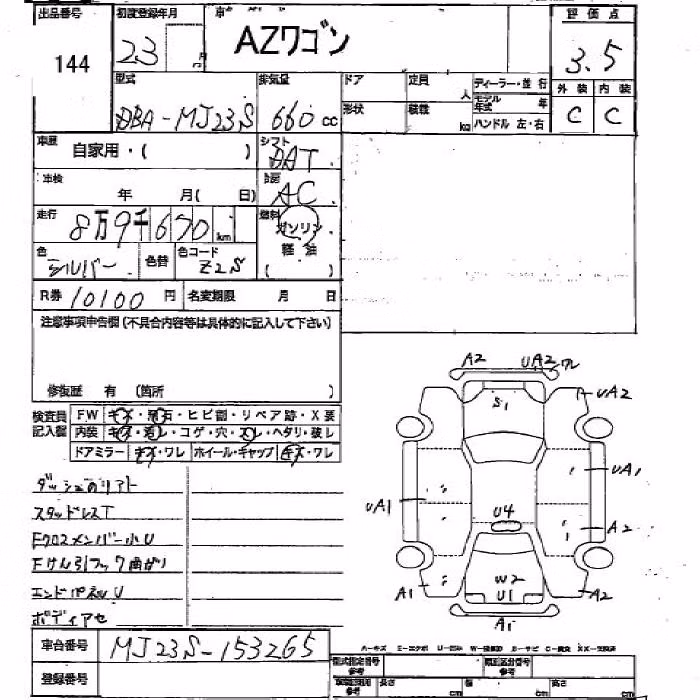 出品番号 初度登録年月 車 評価点
144 23 月 AZワゴン 3.5
型式 排気量 ドア 定員 人 ディーラー・並行 外装 内装
DBA-MJ23S 660cc 形状 積載 kg モデル年式 年 C C
ハンドル 左・右
車歴 自家用・( ) シフト DAT
車検 年 月( 日) 冷房 AC
走行 8万9千670km 燃料 ガソリン
軽油
色 シルバー 色替 色コード Z2S ( )
R券 10100円 名変期限 月 日
注意事項申告欄(不具合内容等は具体的に記入して下さい)
修復歴 有 (箇所 )
検査員 FW キズ・飛石・ヒビ割・リペア跡・X要
記入欄 内装 キズ・汚レ・コゲ・穴・スレ・ヘタリ・破レ
ドアミラー キズ・ワレ ホイール・キャップ キズ・ワレ
スタッドレスT
FクロスメンバーU小U
Fけん引フック曲がり
エンドパネルU
ボディアセ
A2 UA2 ワレ
S1 UA2
UA1 UA1
U4 A2
A1 W2 A2
U1
A1
車台番号 MJ23S-153265
登録番号
型式指定番号 参考 類別区分番号 参考
参考 長さ cm 幅 cm 高さ cm